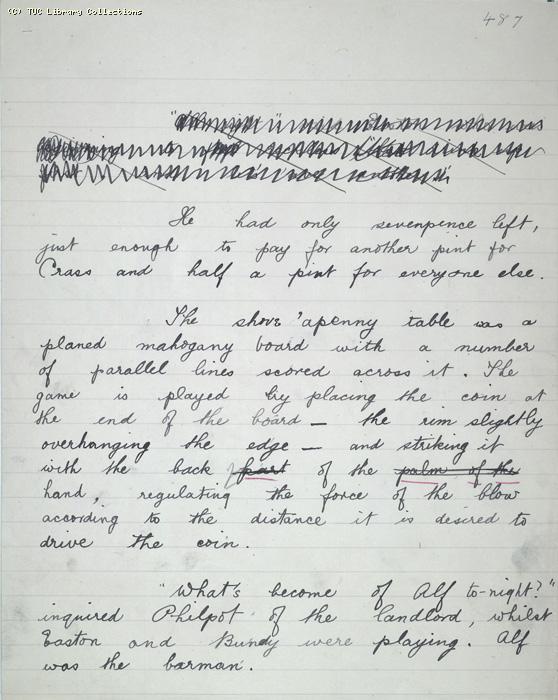 (C) TUC Library Collections
487
He had only sevenpence left,
just enough to pay for another pint for
Crass and half a pint for everyone else.
The shove 'apenny table was a
planed mahogany board with a number
of parallel lines scored across it. The
game is played by placing the coin at
the end of the board – the rim slightly
overhanging the edge – and striking it
with the back part of the palm of the
hand, regulating the force of the blow
according to the distance it is desired to
drive the coin.
"What's become of Alf to-night?"
inquired Philpot of the landlord, whilst
Easton and Bundy were playing. Alf
was the barman.